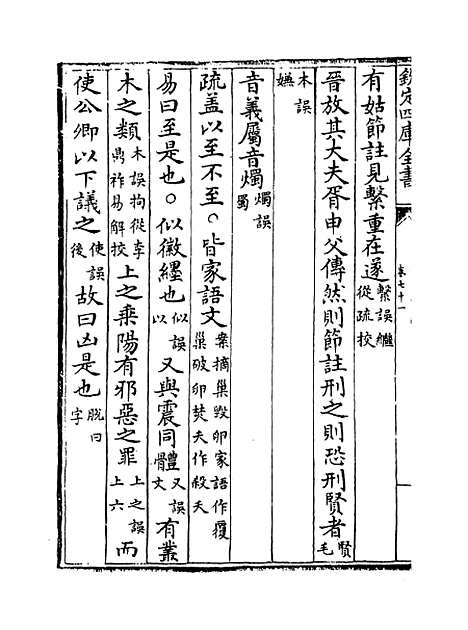 欽定四庫全書
卷七十一
有姑節註見繫重在遂繫誤繼從疏校
晉放其大夫胥申父傳然則節註刑之則恐刑賢者賢毛
本誤嫌
音義屬音燭燭誤蜀
疏蓋以至不至○皆家語文案摘巢毀卵家語作覆巢破卵焚夭作殺夭
易曰至是也○似徽纆也似誤以又與震同體又誤文有叢
木之類木誤拘從李鼎祚易解校上之乘陽有邪惡之罪上之誤上六而
使公卿以下議之使誤後故曰凶是也脫曰字